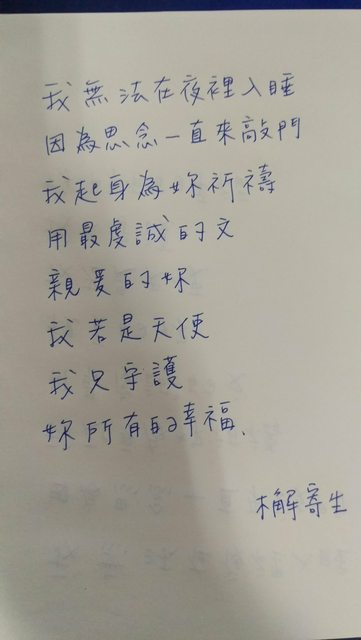 我無法在夜裡入睡
因為思念一直來敲門
我起身為妳祈禱
用最虔誠的文
親愛的妳
我若是天使
我只守護
妳所有的幸福.
檞寄生